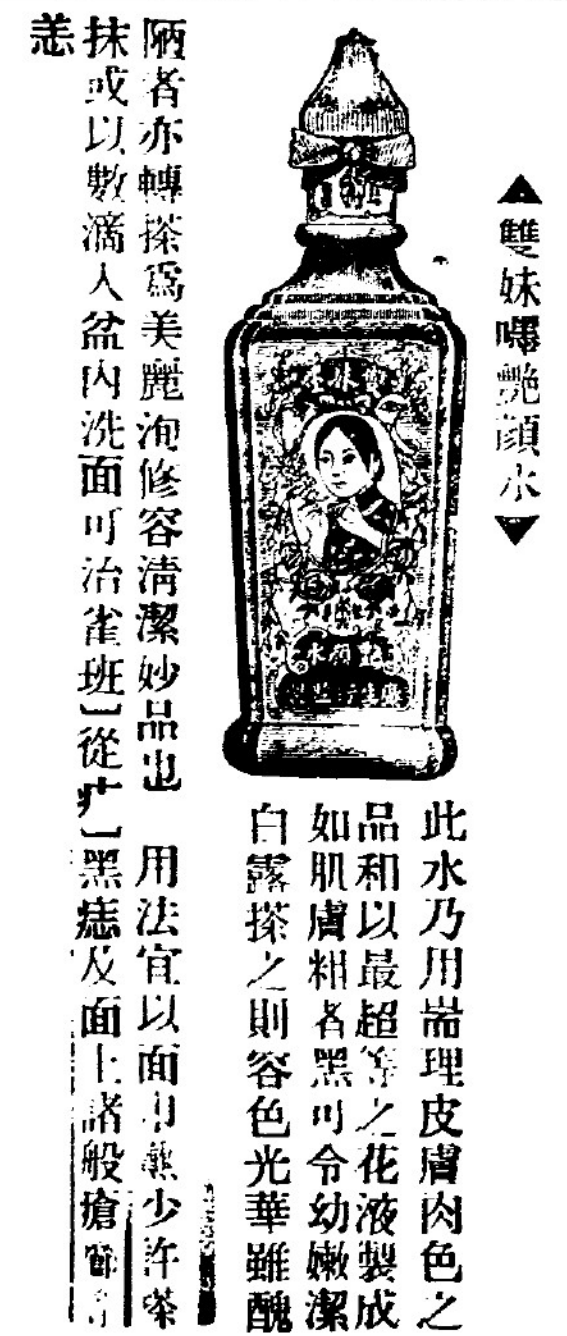 ▲雙妹嘜艷顏水▼
此水乃用耑理皮膚肉色之
品和以最超等之花液製成
如肌膚粗者黑可令幼嫩潔
白露搽之則容色光華雖醜
陋者亦轉搽爲美麗洵修容清潔妙品也 用法宜以面巾蘸少許搽
抹或以數滴入盆內洗面可治雀班〔從疒〕黑痣及面上諸般瘡
恙
顏水